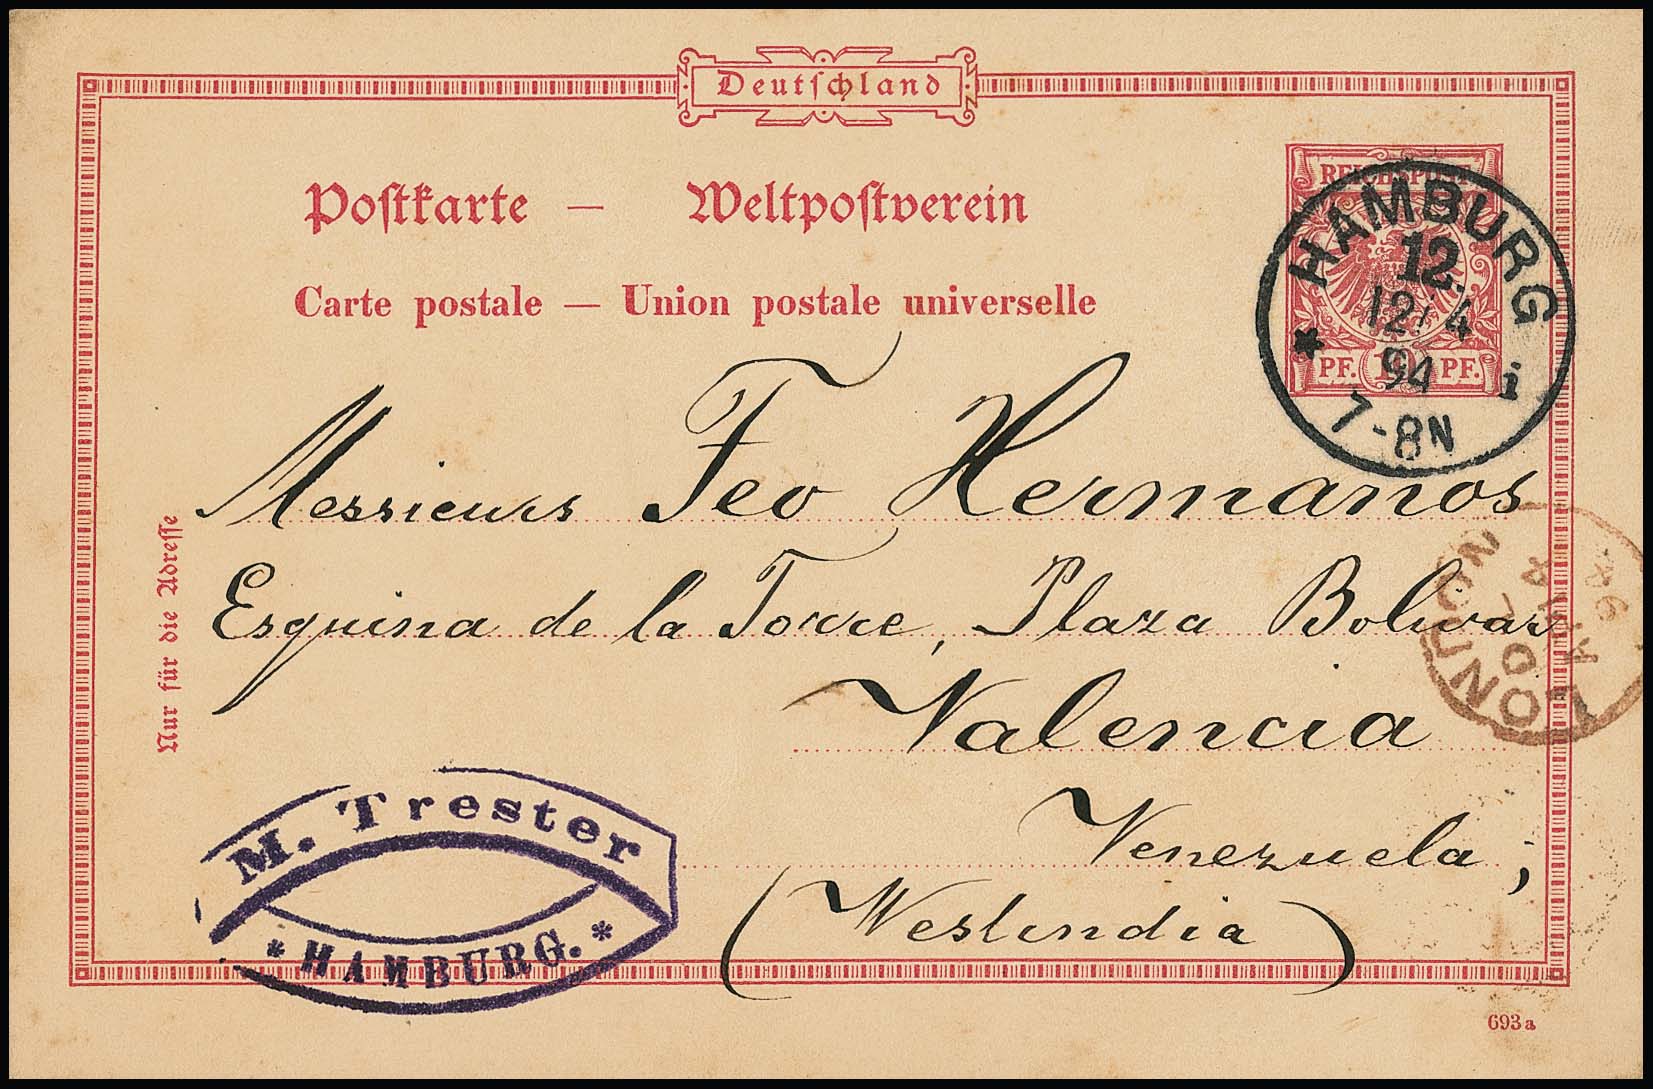 Deutschland
Postkarte — Weltpostverein
Carte postale — Union postale universelle
REICHSPOST
PF. 10 PF.
HAMBURG
12.
12/4
94
7-8N
* i
Messieurs Feo Hermanos
Esquina de la Torre, Plaza Bolivar
Valencia
Venezuela;
(Westindia)
Nur für die Adresse
LONDON
94
M. Trester
* HAMBURG. *
693a